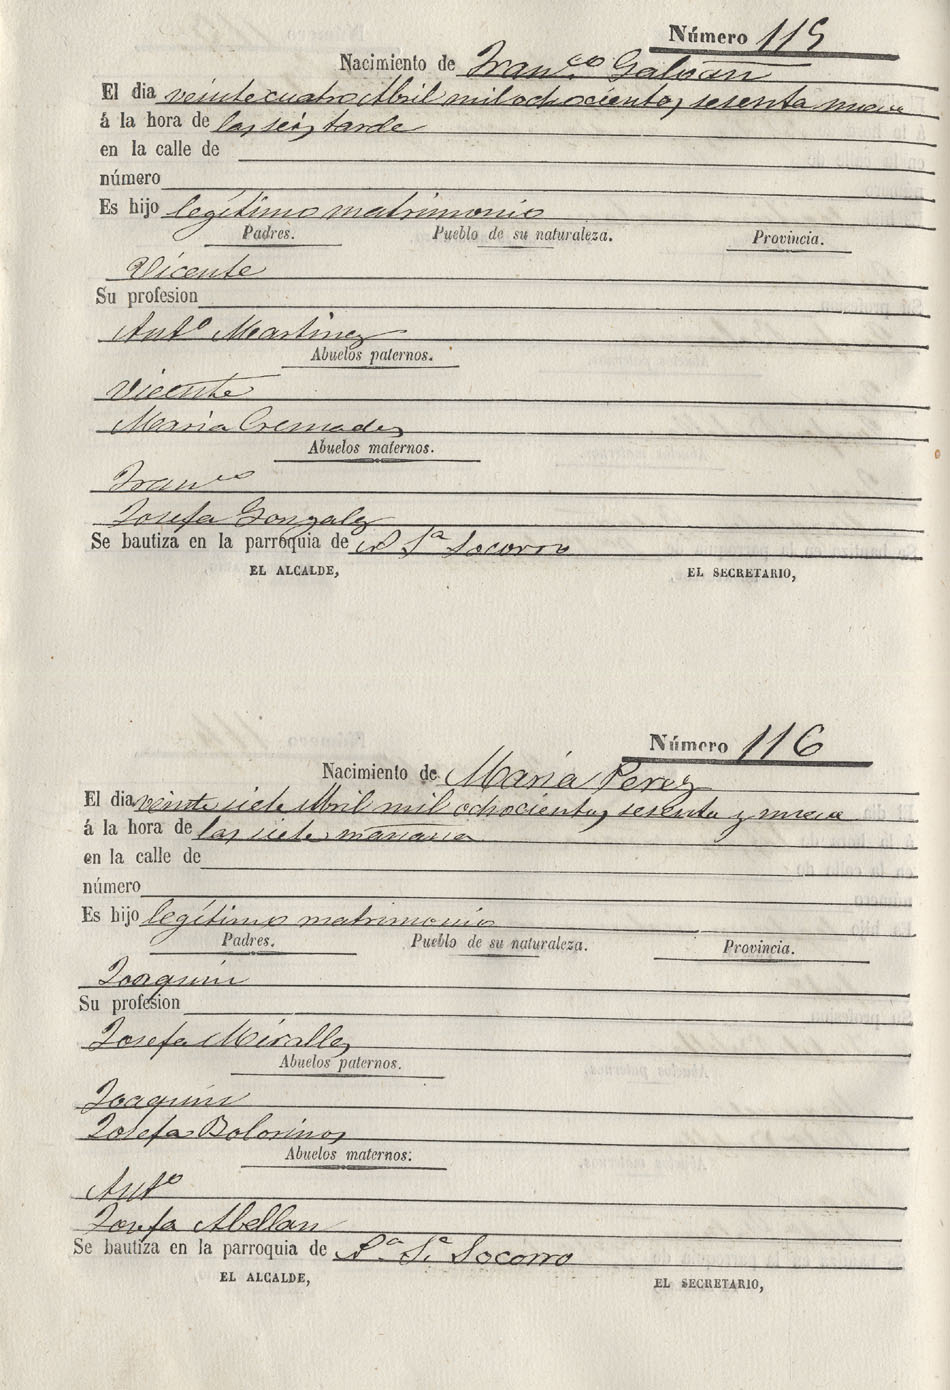 Número 115
Nacimiento de Fran.co Galvañ
El dia veintecuatro Abril mil ochocientos sesenta nueve
á la hora de las seis tarde
en la calle de
número
Es hijo legítimo matrimonio
Padres. Pueblo de su naturaleza. Provincia.
Vicente
Su profesion
Ant.ª Martinez
Abuelos paternos.
Vicente
Maria Cremades
Abuelos maternos.
Fran.co
Josefa Gonzalez
Se bautiza en la parroquia de Sª Socorro
EL ALCALDE, EL SECRETARIO,
Número 116
Nacimiento de Maria Perez
El dia veinte siete Abril mil ochocientos sesenta y nueve
á la hora de las siete mañana
en la calle de
número
Es hijo legítimo matrimonio
Padres. Pueblo de su naturaleza. Provincia.
Joaquin
Su profesion
Josefa Miralles
Abuelos paternos.
Joaquin
Josefa Bolorinos
Abuelos maternos.
Antº
Josefa Abellan
Se bautiza en la parroquia de Sª Socorro
EL ALCALDE, EL SECRETARIO,